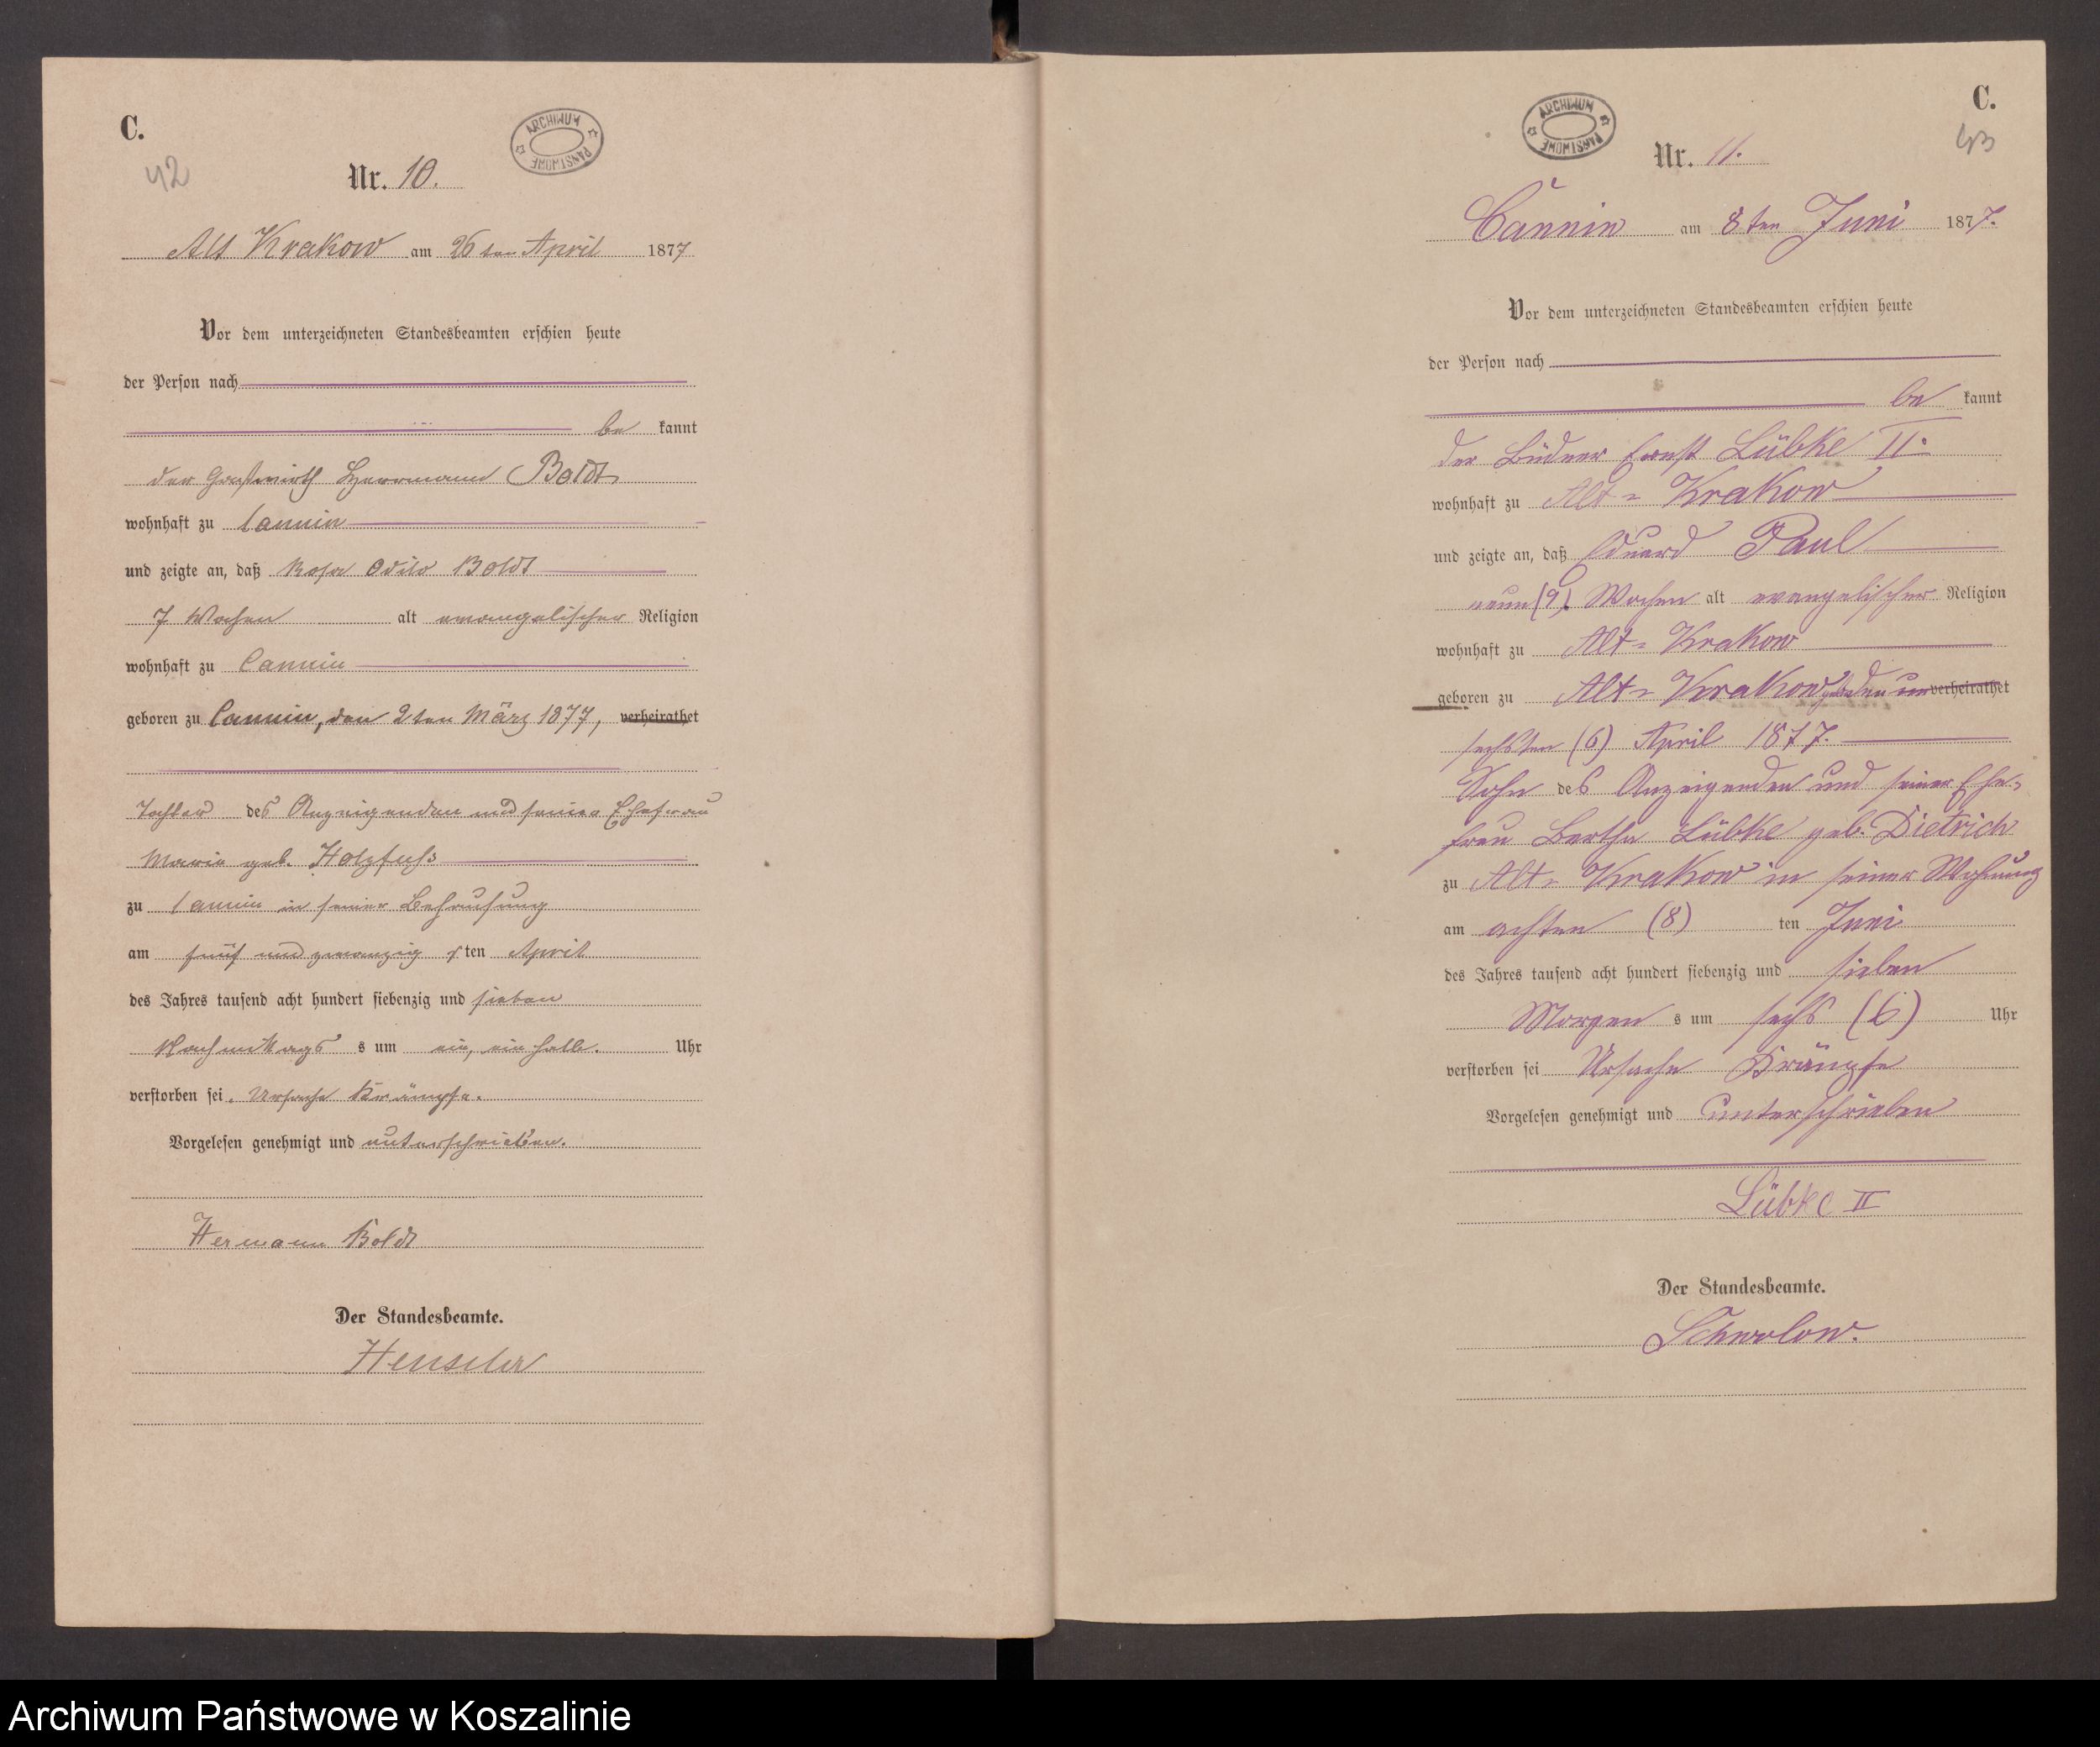 C.
42
ARCHIWUM PAŃSTWOWE
Nr. 10.
Alt Krakow am 26ten April 1877
Vor dem unterzeichneten Standesbeamten erschien heute
der Person nach
be kannt
der Gastwirth Herrmann Boldt
wohnhaft zu Cannin
und zeigte an, daß Rosa Odilo Boldt
7 Wochen alt evangelischer Religion
wohnhaft zu Cannin
geboren zu Cannin, den 2ten März 1877, verheirathet
Tochter des Anzeigenden und seiner Ehefrau
Marie geb. Holzfuß
zu Cannin in seiner Behausung
am fünf und zwanzig sten April
des Jahres tausend acht hundert siebenzig und sieben
Nachmittags s um ein, ein halb. Uhr
verstorben sei. Ursache Krämpfe.
Vorgelesen genehmigt und unterschrieben.
Hermann Boldt
Der Standesbeamte.
C.
43
ARCHIWUM PAŃSTWOWE
Nr. 11.
Cannin am 8ten Juni 1877.
Vor dem unterzeichneten Standesbeamten erschien heute
der Person nach
be kannt
der Büdner Ernst Lübke II.
wohnhaft zu Alt-Krakow
und zeigte an, daß Eduard Paul
neun (9) Wochen alt evangelischer Religion
wohnhaft zu Alt-Krakow
geboren zu Alt-Krakow den unverheirathet
sechsten (6) April 1877.
Sohn des Anzeigenden und seiner Ehe-
frau Bertha Lübke geb. Dietrich
zu Alt-Krakow in seiner Wohnung
am achten (8) ten Juni
des Jahres tausend acht hundert siebenzig und sieben
Morgen s um sechs (6) Uhr
verstorben sei Ursache Krämpfe
Vorgelesen genehmigt und unterschrieben
Lübke II
Der Standesbeamte.
Schwolow.
Archiwum Państwowe w Koszalinie